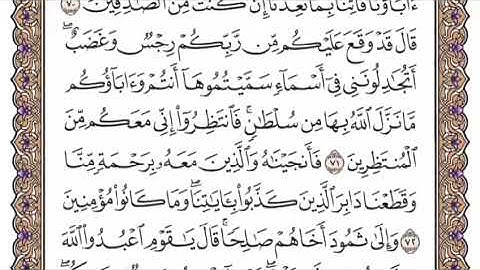 ءَابَآؤُنَا فَأْتِنَا بِمَا تَعِدُنَآ إِن كُنتَ مِنَ ٱلصَّٰدِقِينَ ٧٠
قَالَ قَدْ وَقَعَ عَلَيْكُم مِّن رَّبِّكُمْ رِجْسٌ وَغَضَبٌ ۖ
أَتُجَٰدِلُونَنِى فِىٓ أَسْمَآءٍ سَمَّيْتُمُوهَآ أَنتُمْ وَءَابَآؤُكُم
مَّا نَزَّلَ ٱللَّهُ بِهَا مِن سُلْطَٰنٍ ۚ فَٱنتَظِرُوٓا۟ إِنِّى مَعَكُم مِّنَ
ٱلْمُنتَظِرِينَ ٧١ فَأَنجَيْنَٰهُ وَٱلَّذِينَ مَعَهُۥ بِرَحْمَةٍ مِّنَّا
وَقَطَعْنَا دَابِرَ ٱلَّذِينَ كَذَّبُوا۟ بِـَٔايَٰتِنَا ۖ وَمَا كَانُوا۟ مُؤْمِنِينَ
٧٢ وَإِلَىٰ ثَمُودَ أَخَاهُمْ صَٰلِحًا ۗ قَالَ يَٰقَوْمِ ٱعْبُدُوا۟ ٱللَّهَ